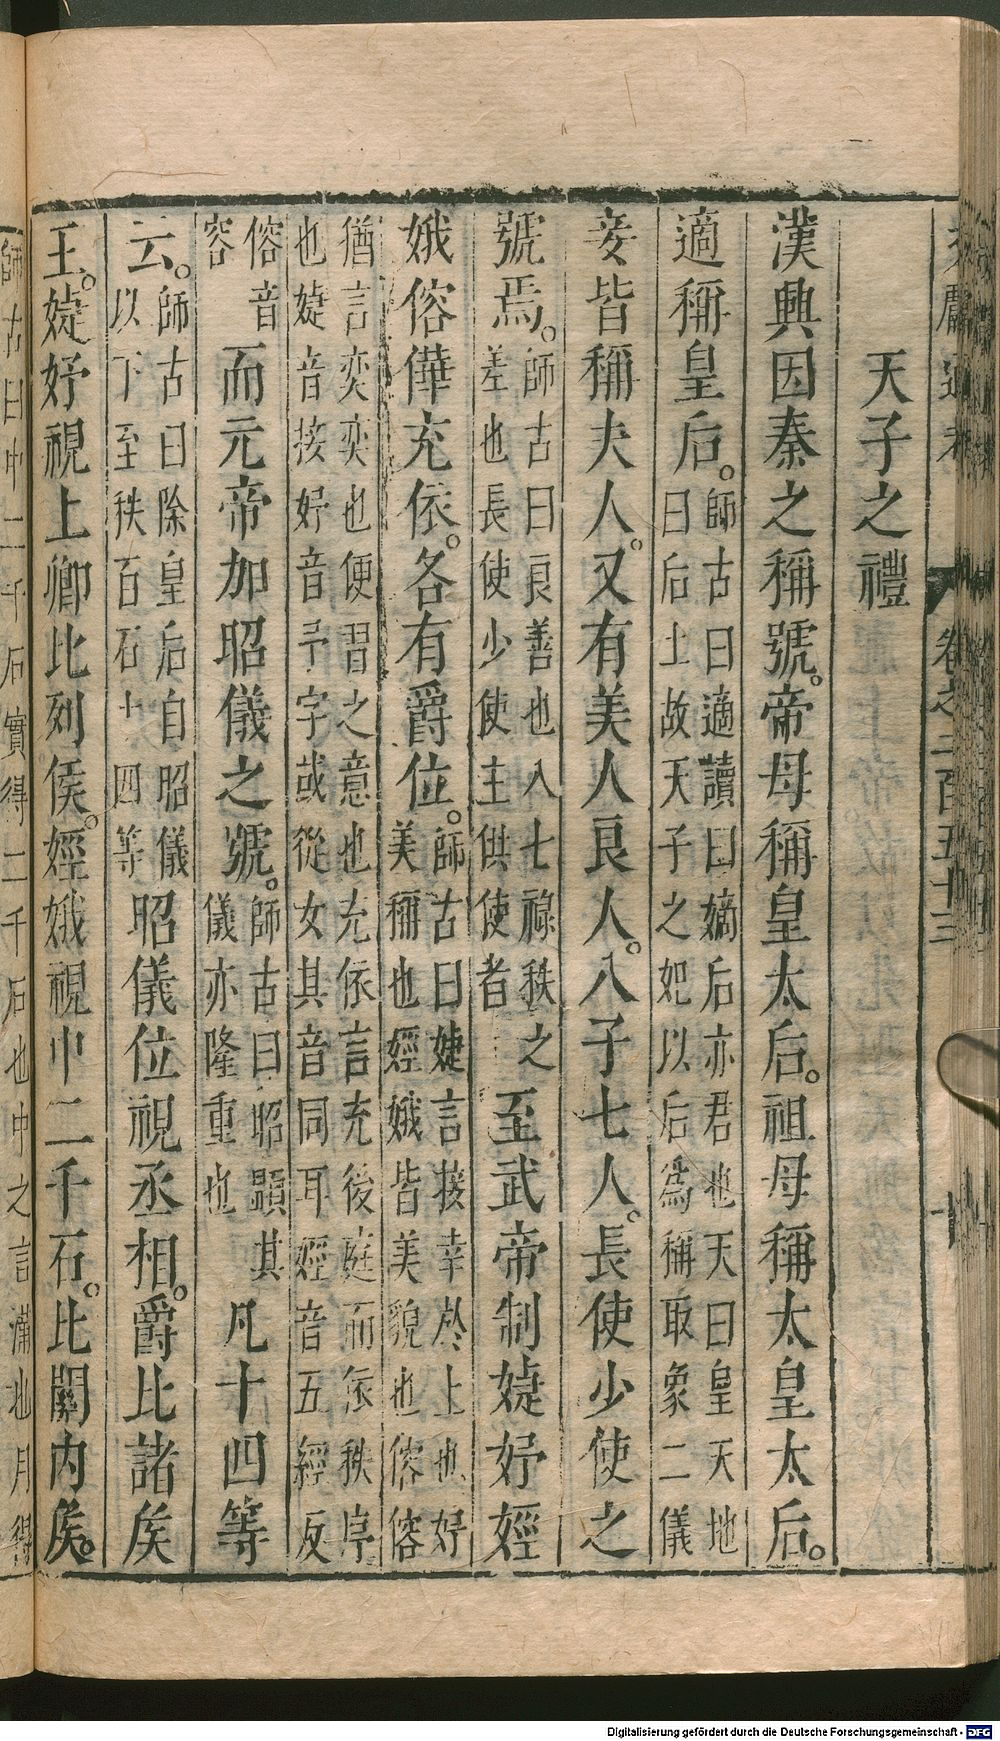 卷之二百五十三
天子之禮
漢興因秦之稱號。帝母稱皇太后。祖母稱太皇太后。
適稱皇后。師古曰適讀曰嫡后亦君也天曰皇天地
曰后土故天子之妃以后爲稱取象二儀
妾皆稱夫人。又有美人良人。八子七人。長使少使之
號焉。師古曰良善也八七祿秩之
差也長使少使主供使者
至武帝制婕妤娙
娥傛僷充依。各有爵位。師古曰婕言接幸於上也妤
美稱也娙娥皆美貌也傛傛
猶言奕奕也便習之意也充依言充後庭而依秩序
也婕音接妤音予字或從女其音同耳娙音五經反
傛音
容
而元帝加昭儀之號。師古曰昭顯其
儀亦隆重也
凡十四等
云。師古曰除皇后自昭儀
以下至秩百石十四等
昭儀位視丞相。爵比諸矦
王。婕妤視上卿比列侯。娙娥視中二千石。比關内矦。
師古曰中二千石實得二千石也中之言滿也月得
Digitalisierung gefördert durch die Deutsche Forschungsgemeinschaft - DFG